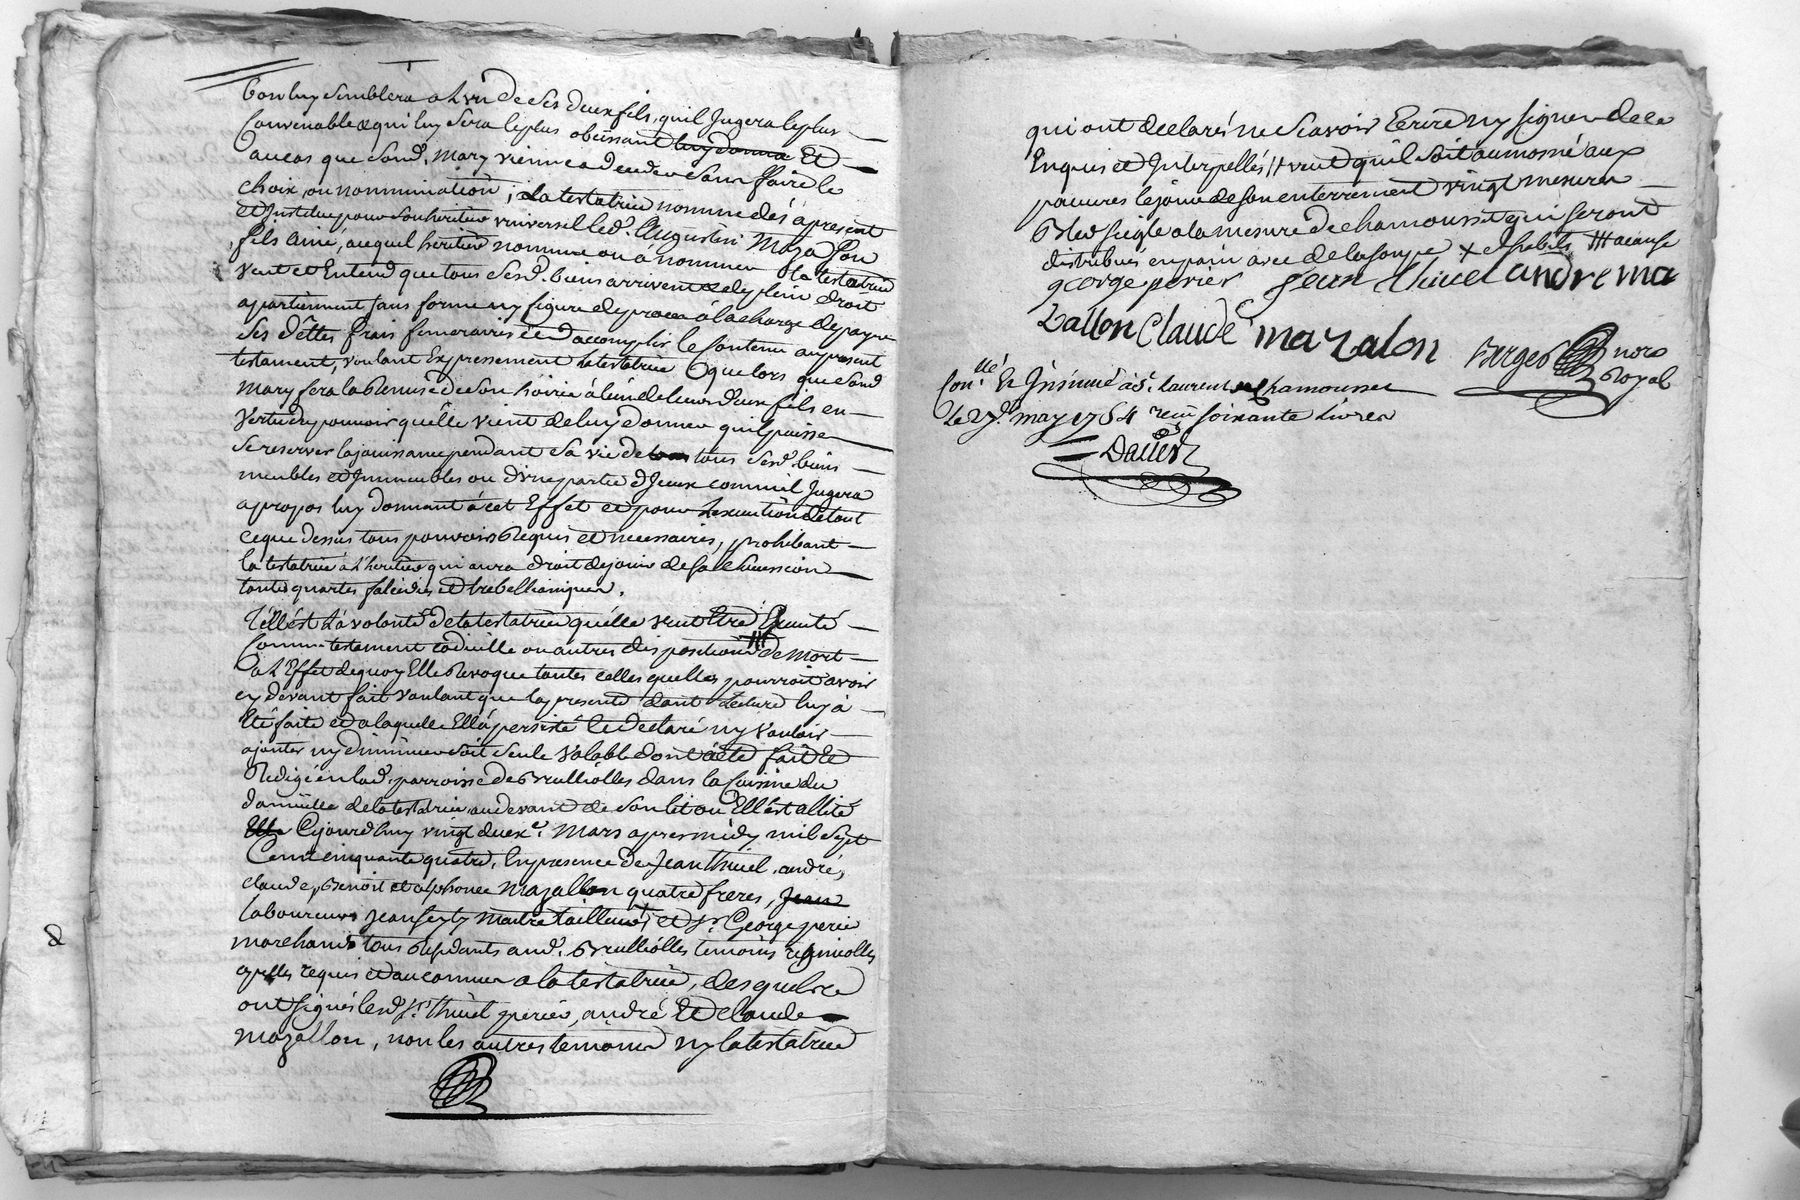 bon luy semblera a L'un de ses deux fils, qu'il Jugera le plus
Convenable & qui luy sera le plus obeissant luy donna Et
au cas que sond. mary vienne a deceder sans ffaire le
choix, ou nommination, La testatrice nomme dés apresent
et Institue pour son heritier universel led. Augustin Mazallon
fils ainé, auquel heritier nommé ou à nommer la testatrice
veut et Entend que tous sesd. biens arrivent de plein droit
apartiennent sans forme ny figure de procès à la charge de payer
ses dêttes frais funeraires et d'accomplir le contenu au present
testament, voulant Expressement la testatrice que lors que sond
mary fera la Remise de son hoirie à l'un de leurs deux fils en
vertu du pouvoir qu'elle vient de luy donner qu'il puisse
se reserver la jouissance pendant sa vie de tous sesd. biens
meubles et Immeubles ou d'une partie d'Iceux comme il Jugera
apropos luy donnant à cet Effet et pour L'exécution de tout
ce que dessus tous pouvoirs Requis et necessaires, prohibant
la testatrice à L'heritier qui aura droit de jouir de sa succession
toutes quartes falcidies et trebellianiques.
Tell'est La volonté de la testatrice qu'elle veut Etre Executé
Comme testament codicille ou autres dispositions # de mort
à L'Effet de quoy Elle Revoque toutes celles qu'elles pourroit avoir
cy devant fait voulant que la presente dont Lecture luy à
Eté faite et a laquelle Ell'à persisté et declaré n'y vouloir
ajouter ny diminuer soit seule valable dont acte fait et
Redigé en lad. parroisse de Brulliolles dans la Cuisine du
domicille de la testatrice au devant de son lit où Ell'est allité
Elle Cejourd'huy vingt deuxe. Mars apres midy mil sept
Cent cinquante quatre, En presence de Jean thivel, andré,
claude, Benoit et alphonce Mazallon quatre freres, Jean
laboureurs jean maitre tailleur, et Sr. George perier
marchand tous Residants aud. Brulliolles temoins regnicolles
apellés requis et au connus a la testatrice, desquels ce
ont signés lesd. Srs. thivel perier, andré Et claude
Mazallon, non les autres temoins ny la testatrice
qui ont declarés ne scavoir Ecrire ny signer de ce
Enquis et Interpellés // veut qu'il soit aumosné aux
pauvres le jour de son enterrement vingt mesures
Bled seigle a la mesure de chamousset qui seront
distribués en pain avec de la soupe x et habits # a cause
george perier Jean thivel andre ma
Zallon Claude mazalon
Varges nore
Royal
Conllé. Et Insinué à St. laurent de Chamousset
Le 27. may 1754 reçu soixante livres
8